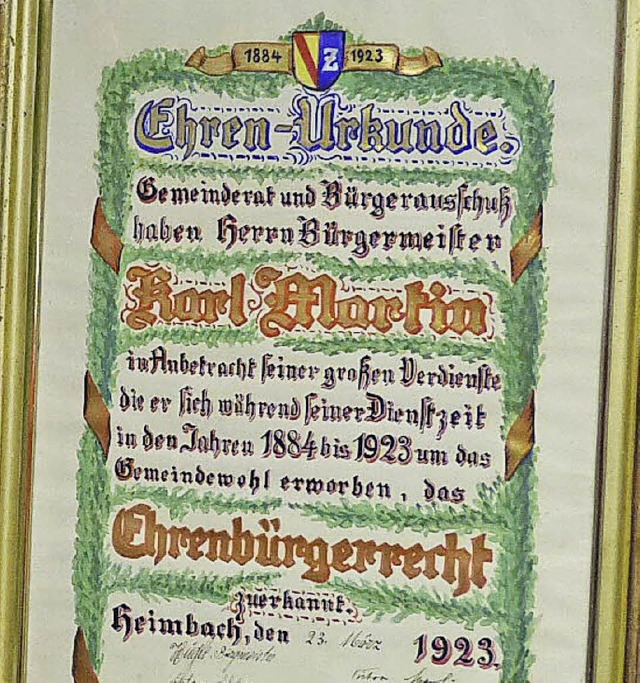 1884 Z 1923
Ehren-Urkunde.
Gemeinderat und Bürgerausschuß
haben Herrn Bürgermeister
Karl Martin
in Anbetracht seiner großen Verdienste
die er sich während seiner Dienstzeit
in den Jahren 1884 bis 1923 um das
Gemeindewohl erworben, das
Ehrenbürgerrecht
zuerkannt.
Heimbach, den 23. März 1923.